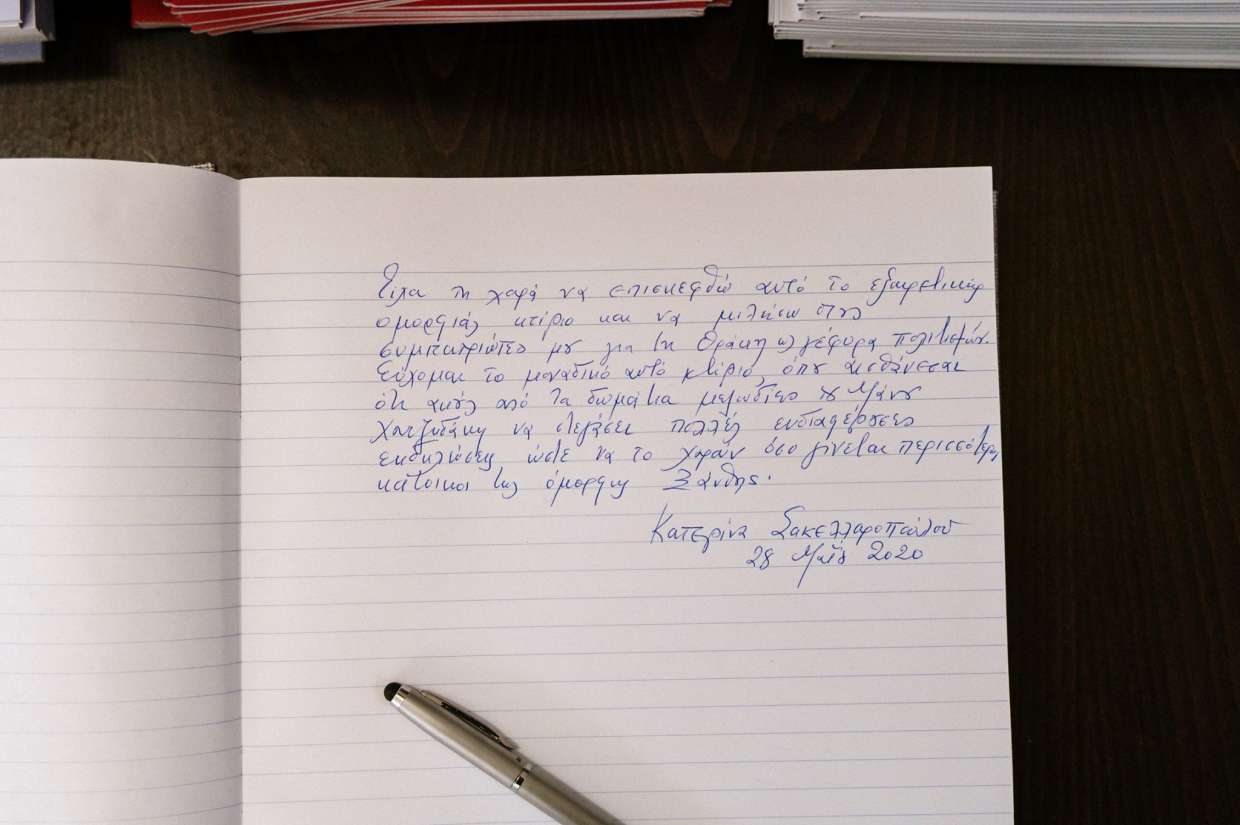 Είχα τη χαρά να επισκεφθώ αυτό το εξαιρετικής
ομορφιάς κτίριο και να μιλήσω στους
συμπατριώτες μου για τη Θράκη ως γέφυρα πολιτισμών.
Εύχομαι το μοναδικό αυτό κτίριο, όπου αισθάνεσαι
ότι ακούς από τα δωμάτια μελωδίες του Μάνου
Χατζιδάκη να στεγάσει πολλές ενδιαφέρουσες
εκδηλώσεις ώστε να το χαρούν όσο γίνεται περισσότεροι
κάτοικοι της όμορφης Ξάνθης.
Κατερίνα Σακελλαροπούλου
28 Μαΐου 2020